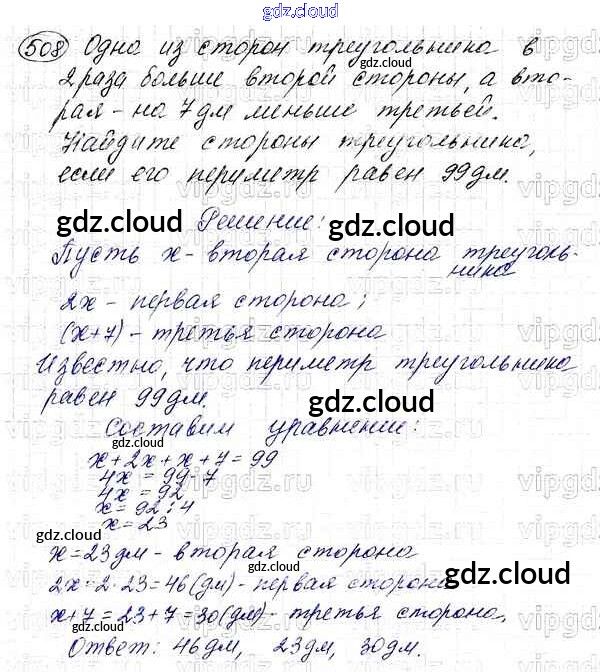 gdz.cloud
508 Одна из сторон треугольника в
2 раза больше второй стороны, а вто-
рая - на 7 дм меньше третьей.
Найдите стороны треугольника,
если его периметр равен 99 дм.
gdz.cloud Решение: gdz.cloud
Пусть x - вторая сторона треуголь-
ника
2x - первая сторона;
(x+7) - третья сторона
Известно, что периметр треугольника
равен 99 дм.
gdz.cloud
Составим уравнение:
gdz.cloud
x + 2x + x + 7 = 99
4x = 99-7
4x = 92
x = 92 : 4
x = 23
gdz.cloud
x = 23 дм - вторая сторона
gdz.cloud
2x = 2 · 23 = 46 (дм) - первая сторона
gdz.cloud
x+7 = 23 + 7 = 30 (дм) - третья сторона.
Ответ: 46 дм, 23 дм, 30 дм.
gdz.cloud